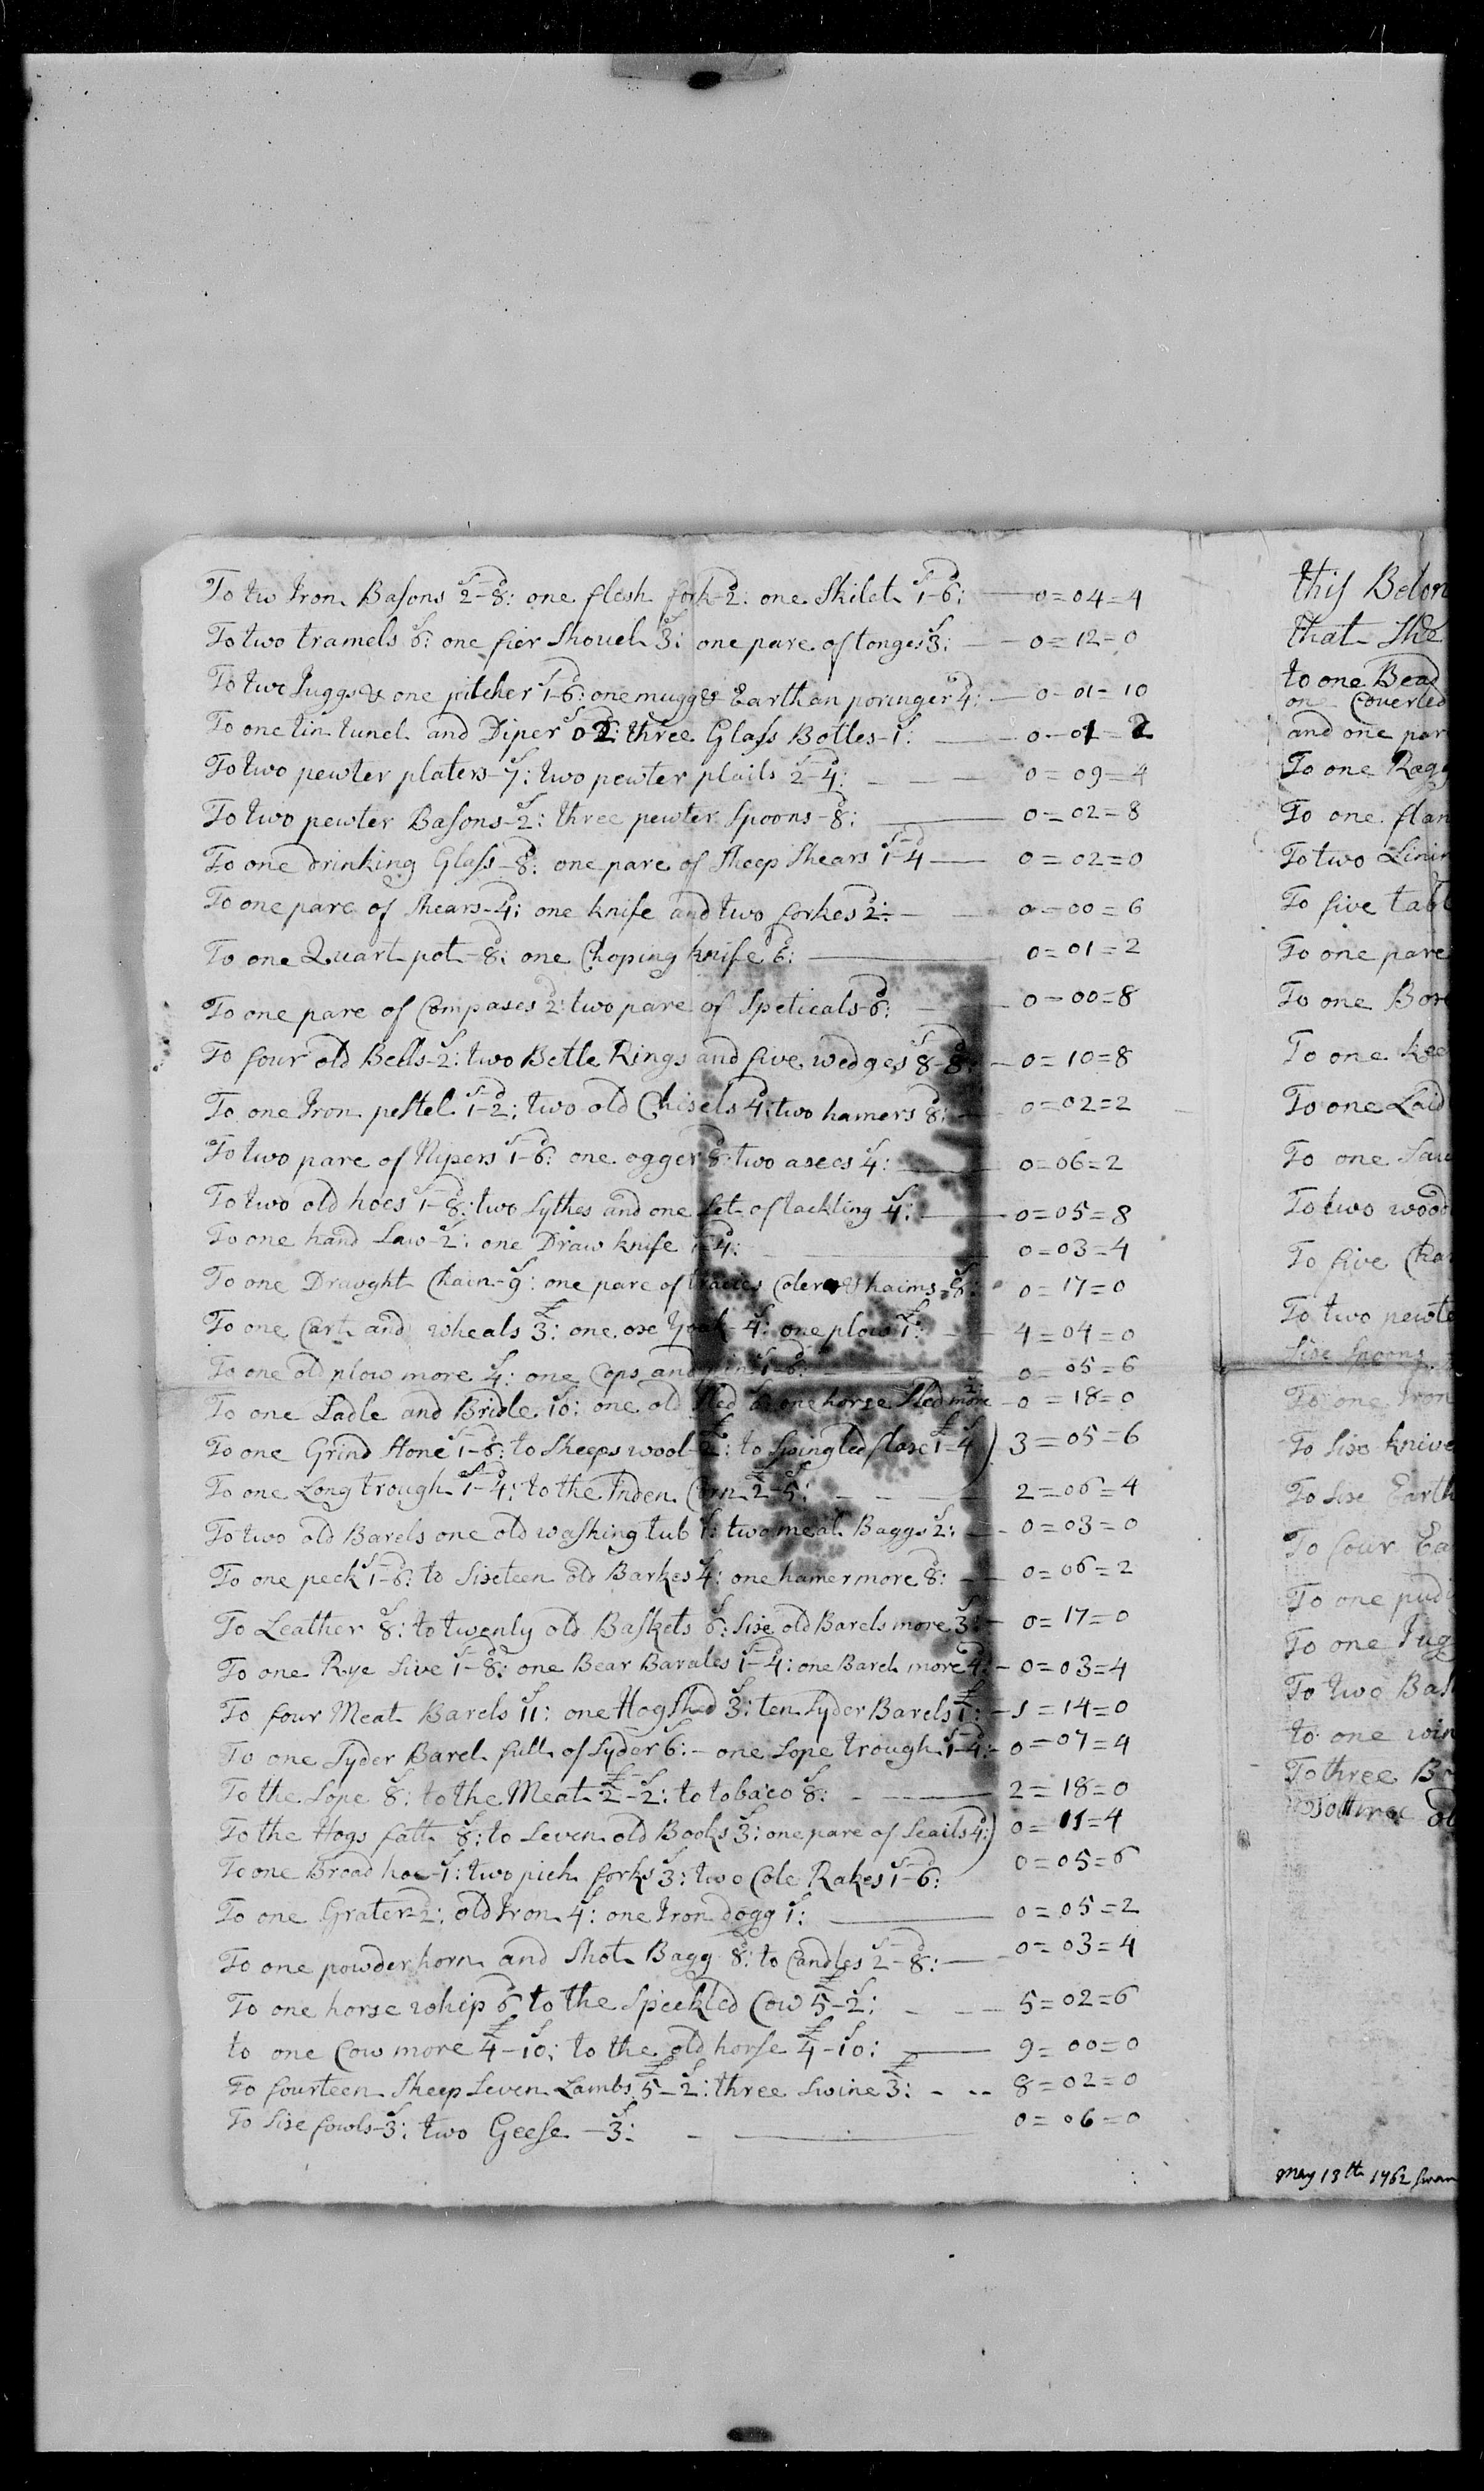 To tw Iron Basons 2-8: one flesh fork-2: one Skilet 1-6: — 0=04=4
To two tramels 6: one fier Shouel 3: one pare of tonges 3: — 0=12=0
To two Juggs & one pitcher 1-6: one mugg & Earthan poringer 4: — 0-01-10
To one tin tunel and Diper 0 2: three Glass Botles-1: — 0-01-2
To two pewter platers-7: two pewter plaits 2-4: — 0=09=4
To two pewter Basons-2: three pewter Spoons-8: — 0=02=8
To one drinking Glass-8: one pare of Sheep Shears 1-4 — 0=02=0
To one pare of Shears-4: one knife and two forkes 2: — 0=00=6
To one Quart pot-8: one Choping knife 6: — 0=01=2
To one pare of Compases 2: two pare of Speticals-6: — 0=00=8
To four old Bells-2: two Betle Rings and five wedges 8-8: — 0=10=8
To one Iron pestel 1-2: two old Chisels 4: two hamers 8: — 0=02=2
To two pare of Nipers 1-6: one ogger 8: two axes 4: — 0=06=2
To two old hoes 1-8: two Sythes and one Set of tackling 4: — 0=05=8
To one hand Saw-2: one Draw knife 1-4: — 0=03=4
To one Draught Chain-9: one pare of traces Coler & haims-8: 0=17=0
To one Cart and wheals 3: one oxe Yoak-4: one plow 1: — 4=04=0
To one old plow more 4: one Cops and pin 1-6: — 0=05=6
To one Sadle and Bridle 10: one old Sled 6: one horse Sled more 2: — 0=18=0
To one Grind Stone 1-6: to Sheeps wool-2: to Swingled flax 1-4) 3=05=6
To one Long trough 1-4: to the Inden Corn 2-5: — 2=06=4
To two old Barels one old washing tub 1: two meal Baggs 2: — 0=03=0
To one peck 1-6: to Sixteen old Barkes 4: one hamer more 8: — 0=06=2
To Leather 8: to twenty old Baskets 6: Six old Barels more 3: — 0=17=0
To one Rye Sive 1-8: one Bear Barales 1-4: one Barel more 4: — 0=03=4
To four Meat Barels 11: one Hogshed 3: ten Syder Barels 1: — 1=14=0
To one Syder Barel full of Syder 6: — one Sope trough 1-4: — 0=07=4
To the Sope 8: to the Meat 2-2: to tobaco 8: — 2=18=0
To the Hogs fatt 8: to Seven old Books 3: one pare of Scails 4:) 0=11=4
To one Broad hoe-1: two pich forks 3: two Cole Rakes 1-6: 0=05=6
To one Grater-2: old Iron 4: one Iron dogg 1: — 0=05=2
To one powder horn and Shot Bagg 8: to Candles 2-8: — 0=03=4
To one horse whip 6 to the Speckled Cow 5-2: — 5=02=6
to one Cow more 4-10: to the old horse 4-10: — 9=00=0
To fourteen Sheep Seven Lambs 5-2: three Swine 3: — 8=02=0
To Six fowls-3: two Geese-3: — 0=06=0
this Belon
that She
to one Bead
one Coverled
and one par
To one Ragg
To one flan
To two Linin
To five tabl
To one pare
To one Box
To one kee
To one Laid
To one Saw
To two wood
To five Cha
To two pewte
Six Spoons
To one Iron
To Six knive
To Six Earth
To four Ea
To one pudi
To one Jug
To two Bas
to one win
To three B
To three ol
May 13th 1762 Swan